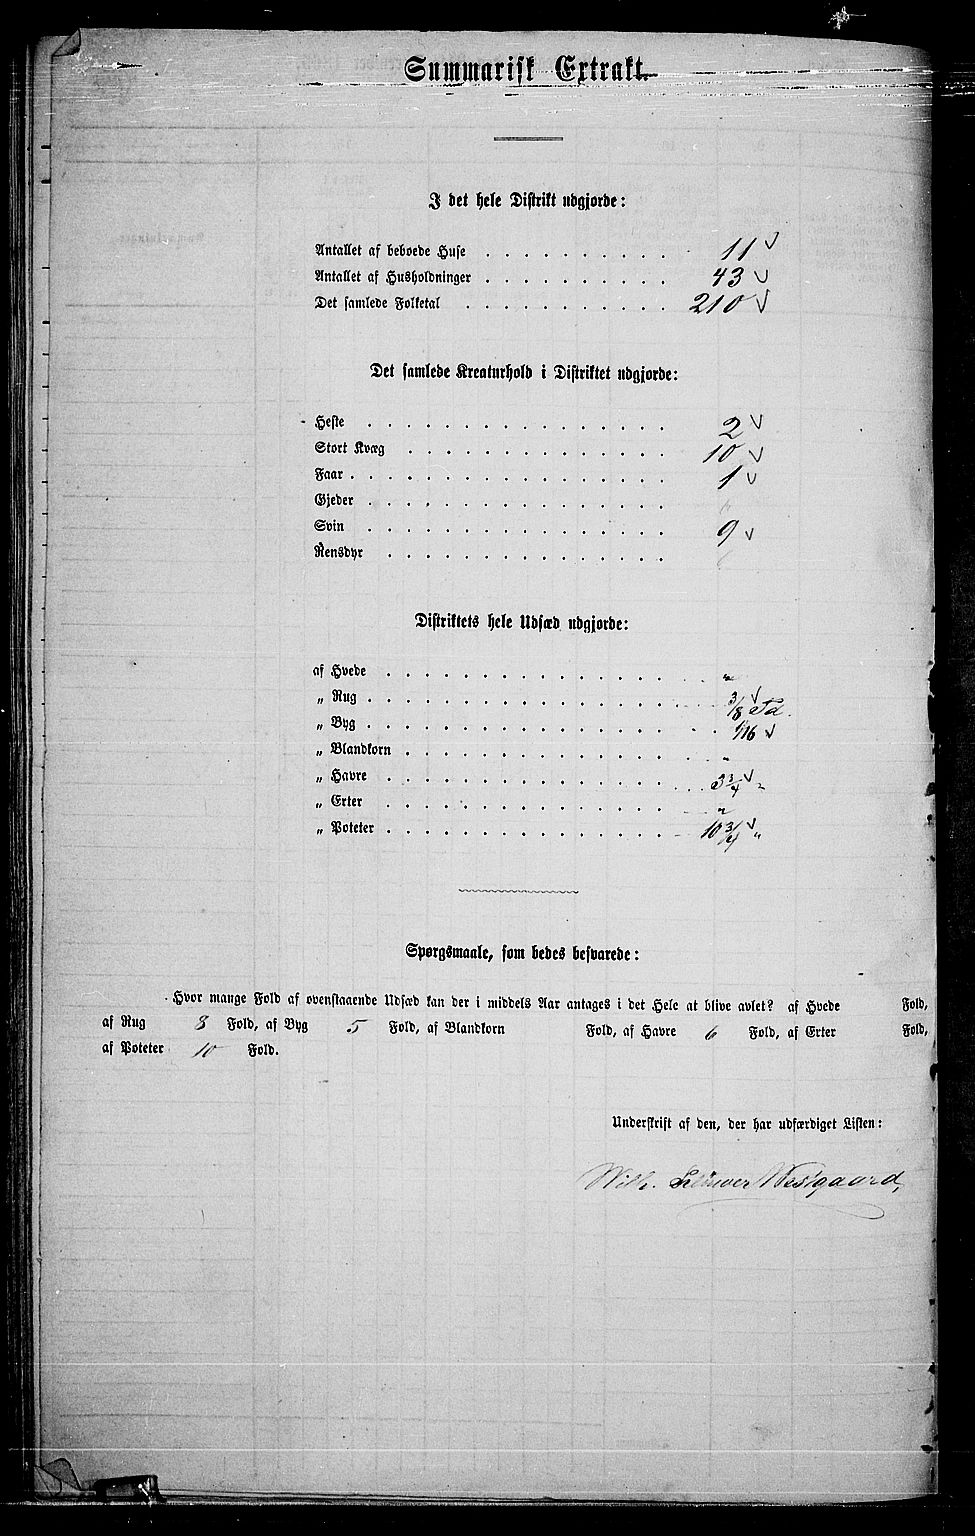 Summarisk Extrakt.
I det hele Distrikt udgjorde:
Antallet af beboede Huse . . . . . . . . . . 11
Antallet af Husholdninger . . . . . . . . . . 43
Det samlede Folketal . . . . . . . . . . . 210
Det samlede Kreaturhold i Distriktet udgjorde:
Heste . . . . . . . . . . . . . . . . 2
Stort Kvæg . . . . . . . . . . . . . . 10
Faar . . . . . . . . . . . . . . . . . 1
Gjeder . . . . . . . . . . . . . . . .
Svin . . . . . . . . . . . . . . . . 9
Rensdyr . . . . . . . . . . . . . . .
Distriktets hele Udsæd udgjorde:
af Hvede . . . . . . . . . . . . . . . "
„ Rug . . . . . . . . . . . . . . . . 3/8 Td.
„ Byg . . . . . . . . . . . . . . . . 1/16
„ Blandkorn . . . . . . . . . . . . . . "
„ Havre . . . . . . . . . . . . . . . 3 3/4 "
„ Erter . . . . . . . . . . . . . . . "
„ Poteter . . . . . . . . . . . . . . . 10 3/4 "
Spørgsmaale, som bedes besvarede:
Hvor mange Fold af ovenstaaende Udsæd kan der i middels Aar antages i det Hele at blive avlet? af Hvede Fold,
af Rug 8 Fold, af Byg 5 Fold, af Blandkorn Fold, af Havre 6 Fold, af Erter Fold,
af Poteter 10 Fold.
Underskrift af den, der har udfærdiget Listen:
Wilh. Westgaard,